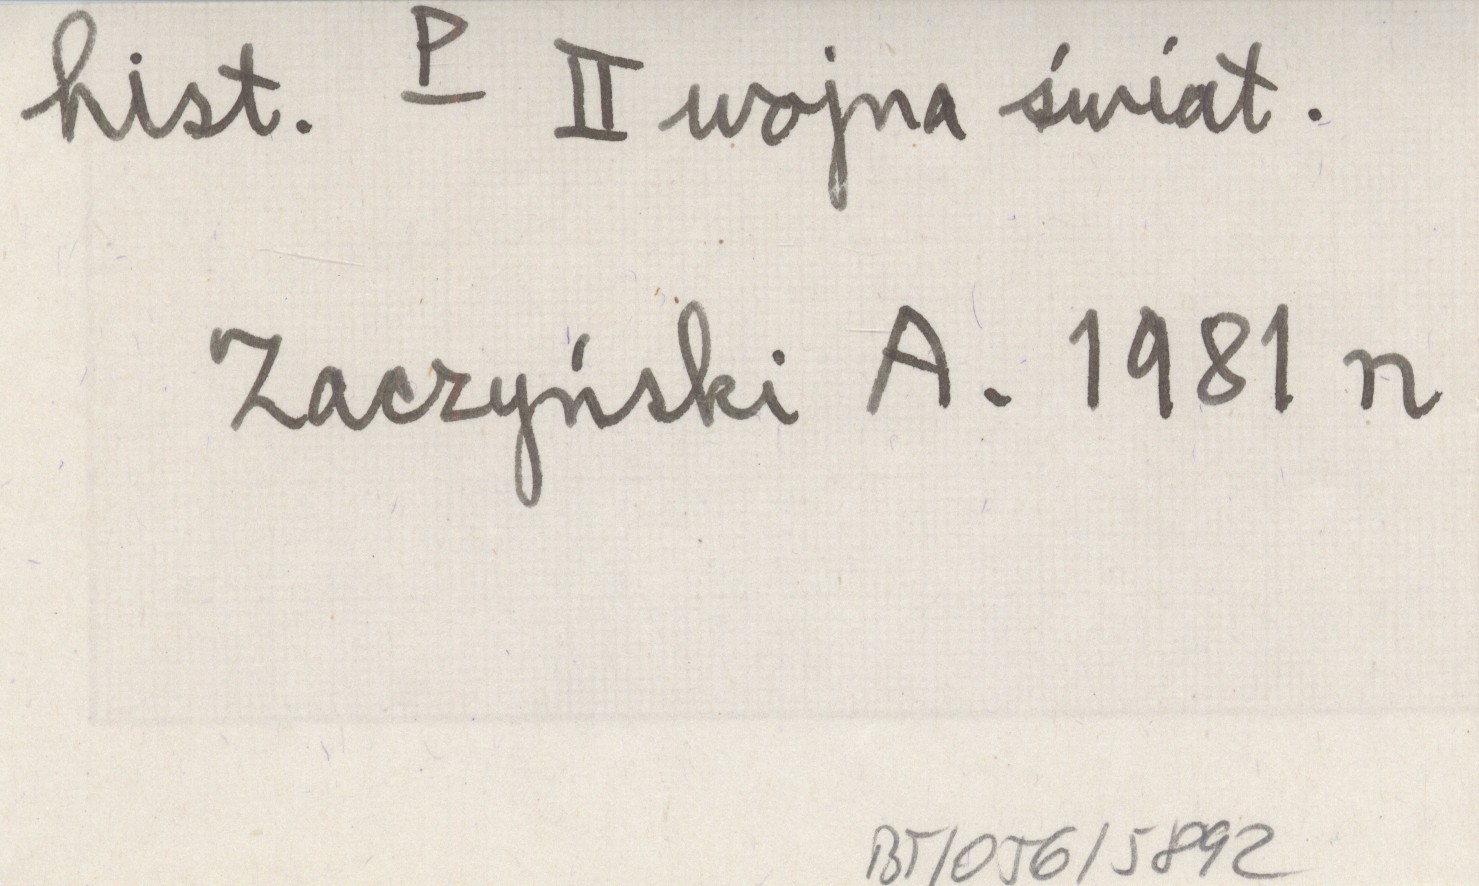 hist. P II wojna świat.
Zaczyński A. 1981 n
BT/056/5892